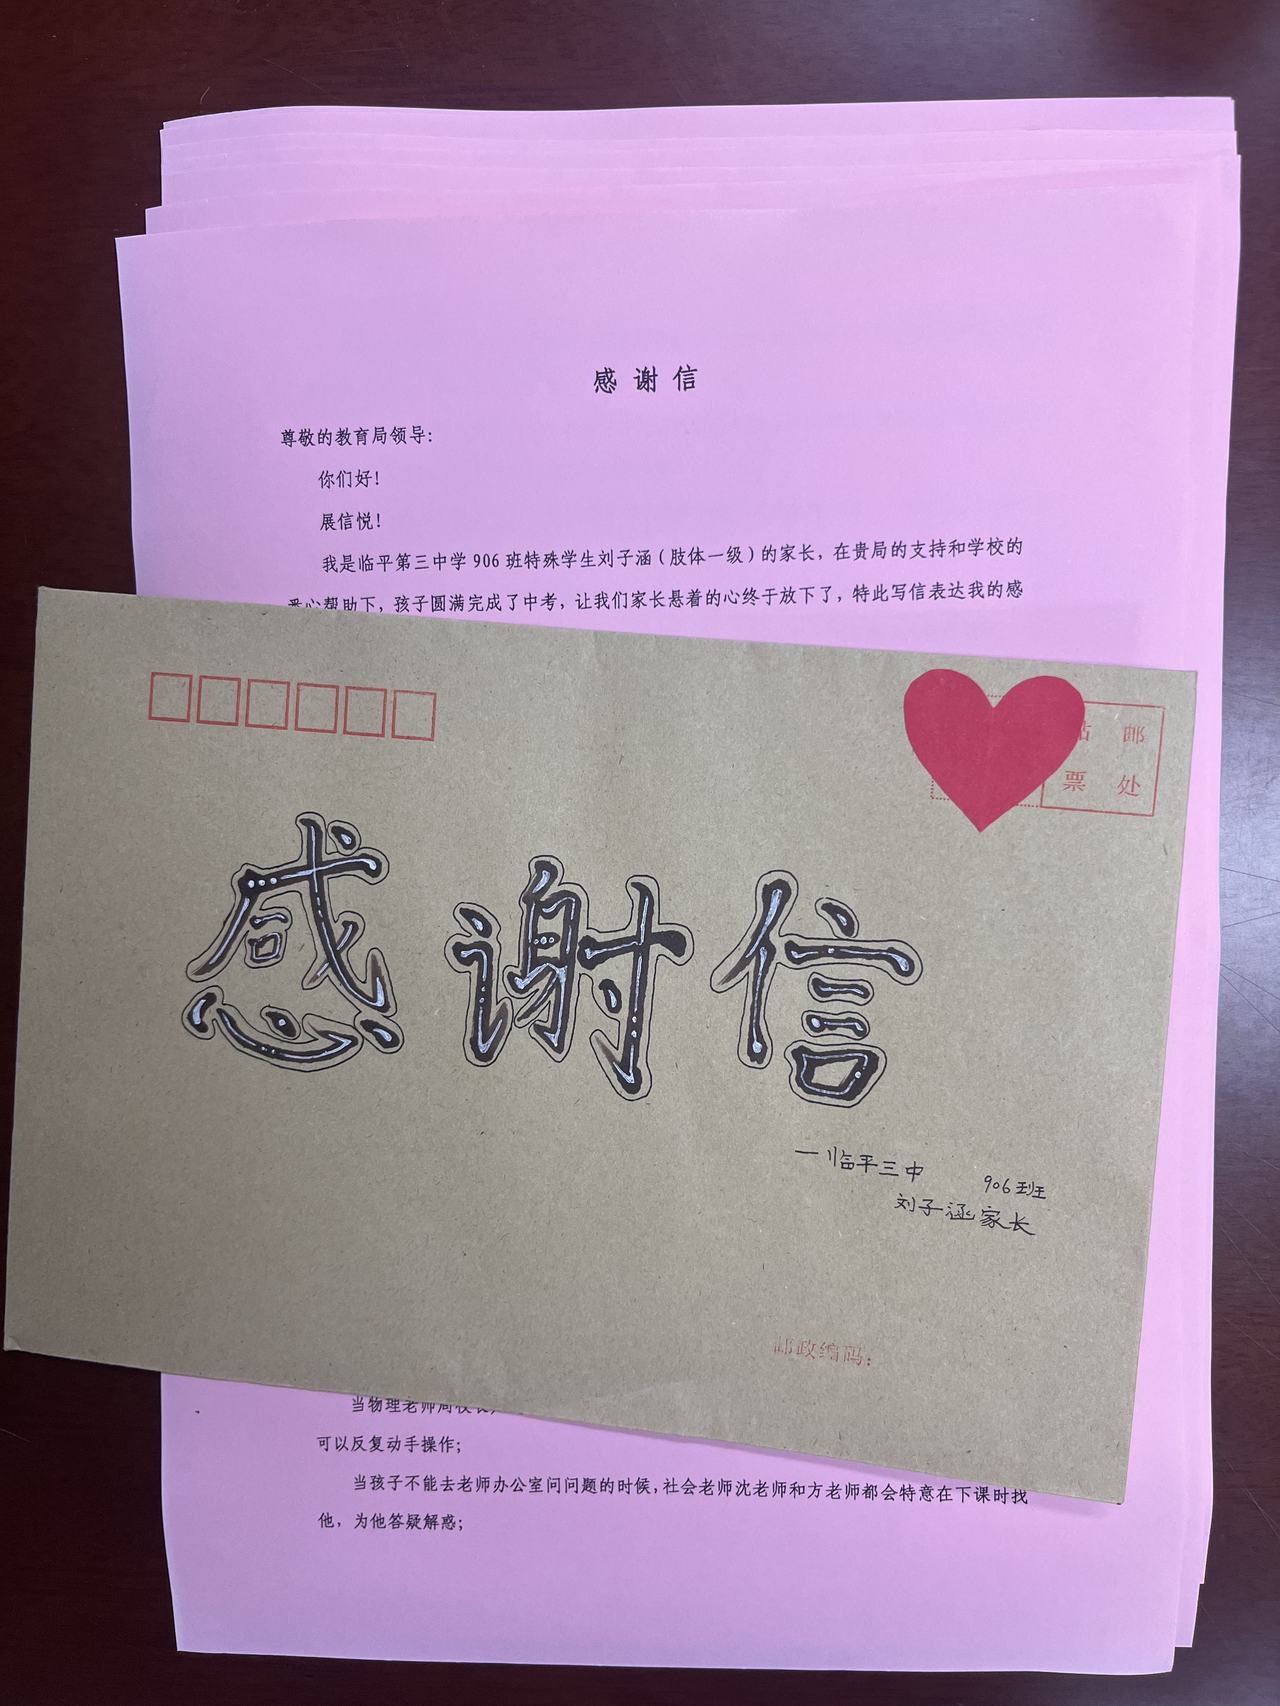 感谢信
尊敬的教育局领导：
你们好！
展信悦！
我是临平第三中学906班特殊学生刘子涵（肢体一级）的家长，在贵局的支持和学校的
悉心帮助下，孩子圆满完成了中考，让我们家长悬着的心终于放下了，特此写信表达我的感
贴 邮
票 处
感谢信
—临平三中 906班
刘子涵家长
邮政编码：
当物理老师周校长
可以反复动手操作；
当孩子不能去老师办公室问问题的时候，社会老师沈老师和方老师都会特意在下课时找
他，为他答疑解惑；